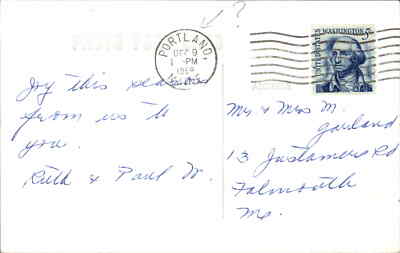 ?
PORTLAND,
DEC 9
PM
UNITED STATES
WASHINGTON 5c
Joy this season
from us to
you.
Ruth & Paul W.
Mr & Mrs M.
Garland
13 Justamere Rd
Falmouth
Me.